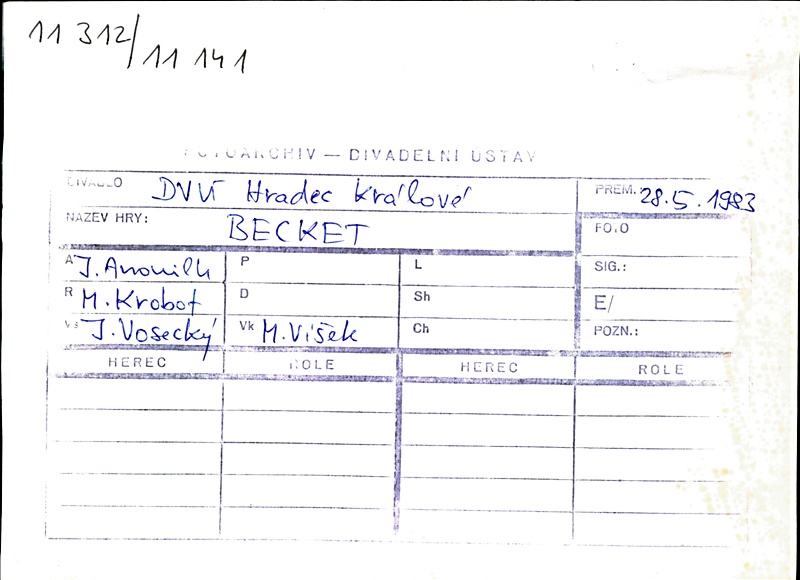 11 312/11 141
FOTOARCHIV — DIVADELNÍ ÚSTAV
DIVADLO DVÚ Hradec Králové PREM.: 28.5.1983
NÁZEV HRY: BECKET FOTO
A J. Anouilh P L SIG.:
R M. Krobot D Sh E/
Vs J. Vosecký Vk M. Višek Ch POZN.:
HEREC ROLE HEREC ROLE